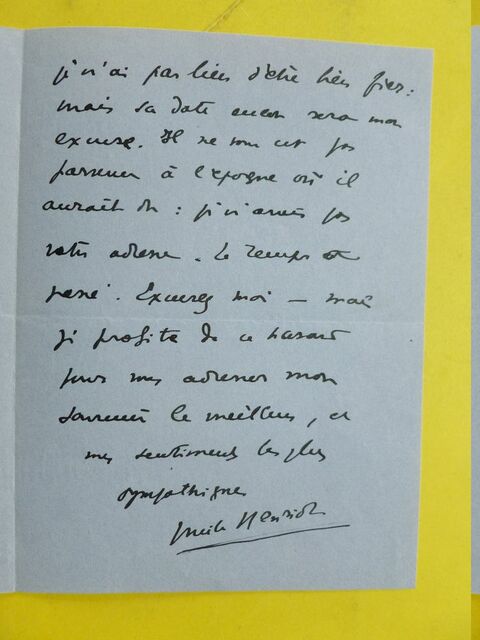 je n'ai pas lieu d'être bien fier :
mais sa date encore sera mon
excuse. Il ne vous est pas
parvenu à l'époque où il
aurait dû : je n'avais pas
votre adresse. Le temps a
passé. Excusez moi — mais
je profite de ce hasard
pour vous adresser mon
souvenir le meilleur, et
mes sentiments les plus
sympathiques
Emile Henriot